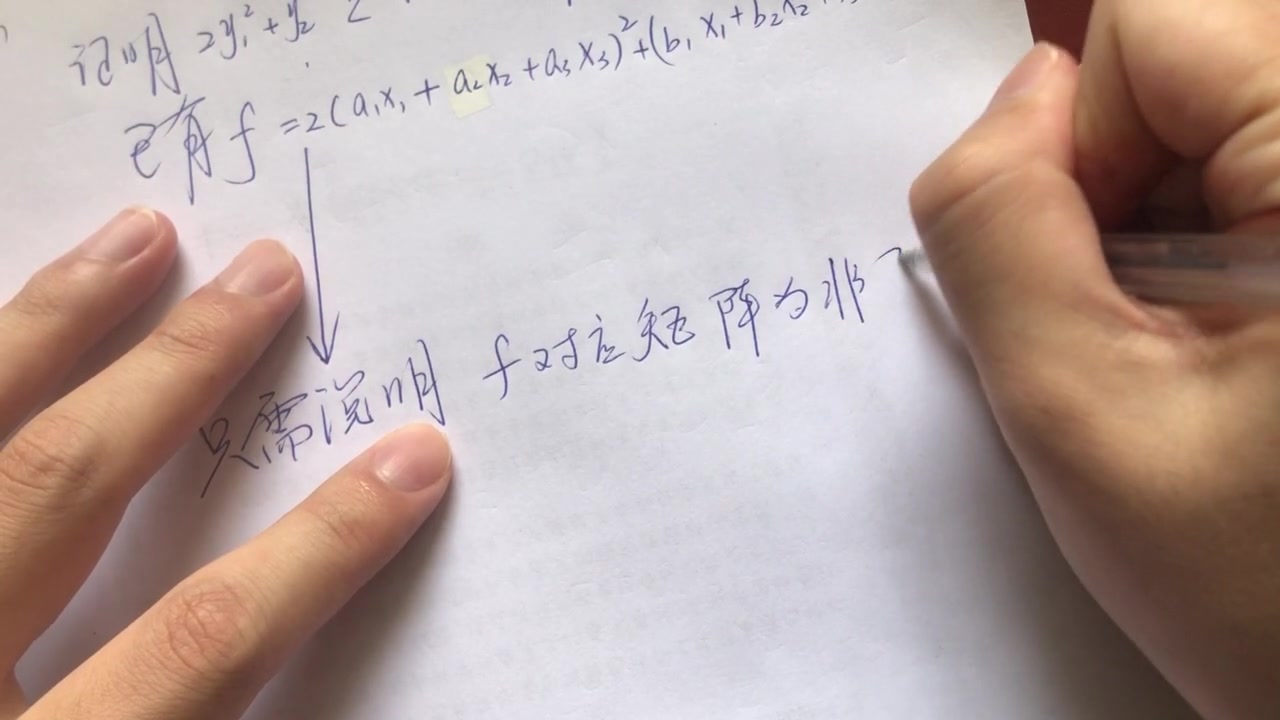 证明 2y₁² + y₂²
已有 f = 2(a₁x₁ + a₂x₂ + a₃x₃)² + (b₁x₁ + b₂x₂
只需说明 f对应矩阵为非